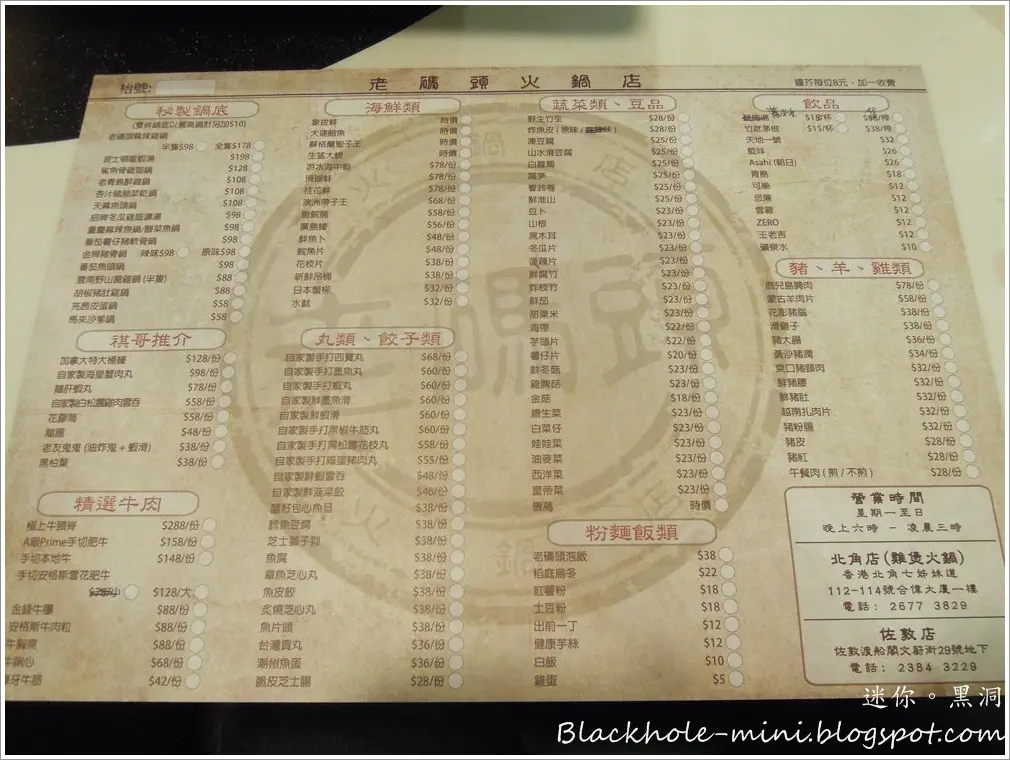 枱號:
老碼頭火鍋店
醬芥每位8元,加一收費
秘製鍋底
(雙併鍋底以價高鍋計另加$10)
老碼頭麻辣雞鍋
半隻$98 全隻$178
波士頓龍蝦湯 $198
鯊魚骨雞翅鍋 $128
老青島醉雞鍋 $108
杏汁豬肺菜乾鍋 $108
天麻魚頭鍋 $108
招牌冬瓜雞翅濃湯 $98
重慶麻辣魚鍋/酸菜魚鍋 $98
番茄薯仔豬軟骨鍋 $98
金牌豬骨鍋 辣味$98 原味$98
番茄魚頭鍋 $98
雲南野山菌雞鍋(半隻) $88
胡椒豬肚雞鍋 $88
芫茜皮蛋鍋 $58
馬來沙爹鍋 $58
祺哥推介
加拿大特大桶蠔 $128/份
自家製海皇蟹肉丸 $98/份
鵝肝蝦丸 $78/份
自家製白松露雞肉雲吞 $58/份
花膠筒 $58/份
$48/份
老友鬼鬼(油炸鬼+蝦滑) $38/份
黑柏葉 $38/份
精選牛肉
極上牛頸脊 $288/份
A級Prime手切肥牛 $158/份
手切本地牛 $148/份
手切安格斯雪花肥牛
$128/大
金錢牛𦟌 $88/份
安格斯牛肉粒 $88/份
$88/份
$68/份
$42/份
海鮮類
象拔蚌 時價
大連鮑魚 時價
蘇格蘭聖子王 時價
生猛大蜆 時價
游水海中蝦 $78/份
$78/份
桂花鮮 $78/份
澳洲帶子王 $68/份
脆鯇腩 $58/份
廣島蠔 $56/份
鮮魚卜 $48/份
鯇魚片 $48/份
花枝片 $38/份
新鮮吊桶 $38/份
日本蟹柳 $32/份
水魷 $32/份
丸類、餃子類
自家製手打四寶丸 $68/份
自家製手打墨魚丸 $60/份
自家製手打蝦丸 $60/份
自家製鮮墨魚滑 $60/份
自家製鮮蝦滑 $60/份
自家製手打黑椒牛筋丸 $60/份
自家製手打黑松露花枝丸 $58/份
自家製手打鹹蛋豬肉丸 $55/份
自家製鮮蝦雲吞 $48/份
自家製鮮韮菜餃 $46/份
蟹籽包心魚旦 $38/份
鱈魚豆腐 $38/份
芝士獅子狗 $38/份
魚腐 $38/份
章魚芝心丸 $38/份
魚皮餃 $38/份
炙燒芝心丸 $38/份
魚片頭 $38/份
台灣貢丸 $36/份
潮州魚蛋 $36/份
脆皮芝士腸 $28/份
蔬菜類、豆品
野生竹笙 $28/份
炸魚皮(原味/麻辣味) $28/份
凍豆腐 $25/份
山水滑豆腐 $25/份
白蘿蔔 $25/份
萵筍 $25/份
響鈴卷 $25/份
鮮淮山 $25/份
豆卜 $23/份
山根 $23/份
黑木耳 $23/份
冬瓜片 $23/份
蓮藕片 $23/份
鮮腐竹 $23/份
炸枝竹 $23/份
鮮茄 $23/份
甜粟米 $23/份
海帶 $23/份
芋頭片 $22/份
薯仔片 $20/份
鮮冬菇 $23/份
雞脾菇 $23/份
金菇 $18/份
唐生菜 $23/份
白菜仔 $23/份
娃娃菜 $23/份
油麥菜 $23/份
西洋菜 $23/份
皇帝菜 $23/份
唐蒿 時價
粉麵飯類
老碼頭泡飯 $38
稻庭烏冬 $22
紅薯粉 $18
土豆粉 $18
出前一丁 $12
健康芋絲 $12
白飯 $10
雞蛋 $5
飲品
酸梅湯 $18/杯 $38/樽
竹蔗茅根 $15/杯 $38/樽
天地一號 $32
藍妹 $26
Asahi (朝日) $26
青島 $18
可樂 $12
忌廉 $12
雪碧 $12
ZERO $12
王老吉 $12
礦泉水 $10
豬、羊、雞類
鹿兒島腩肉 $78/份
蒙古羊肉片 $58/份
花膨豬腦 $38/份
滑雞子 $38/份
豬大腸 $36/份
黃沙豬潤 $34/份
爽口豬頸肉 $32/份
鮮豬腰 $32/份
鮮豬肚 $32/份
越南扎肉片 $32/份
豬粉腸 $32/份
豬皮 $28/份
豬紅 $28/份
午餐肉(煎/不煎) $28/份
營業時間
星期一至日
晚上六時 - 凌晨三時
北角店(雞煲火鍋)
香港北角七姊妹道
112-114號合偉大廈一樓
電話: 2677 3829
佐敦店
佐敦渡船閣文蔚街29號地下
電話: 2384 3229
老碼頭
迷你。黑洞
Blackhole-mini.blogspot.com